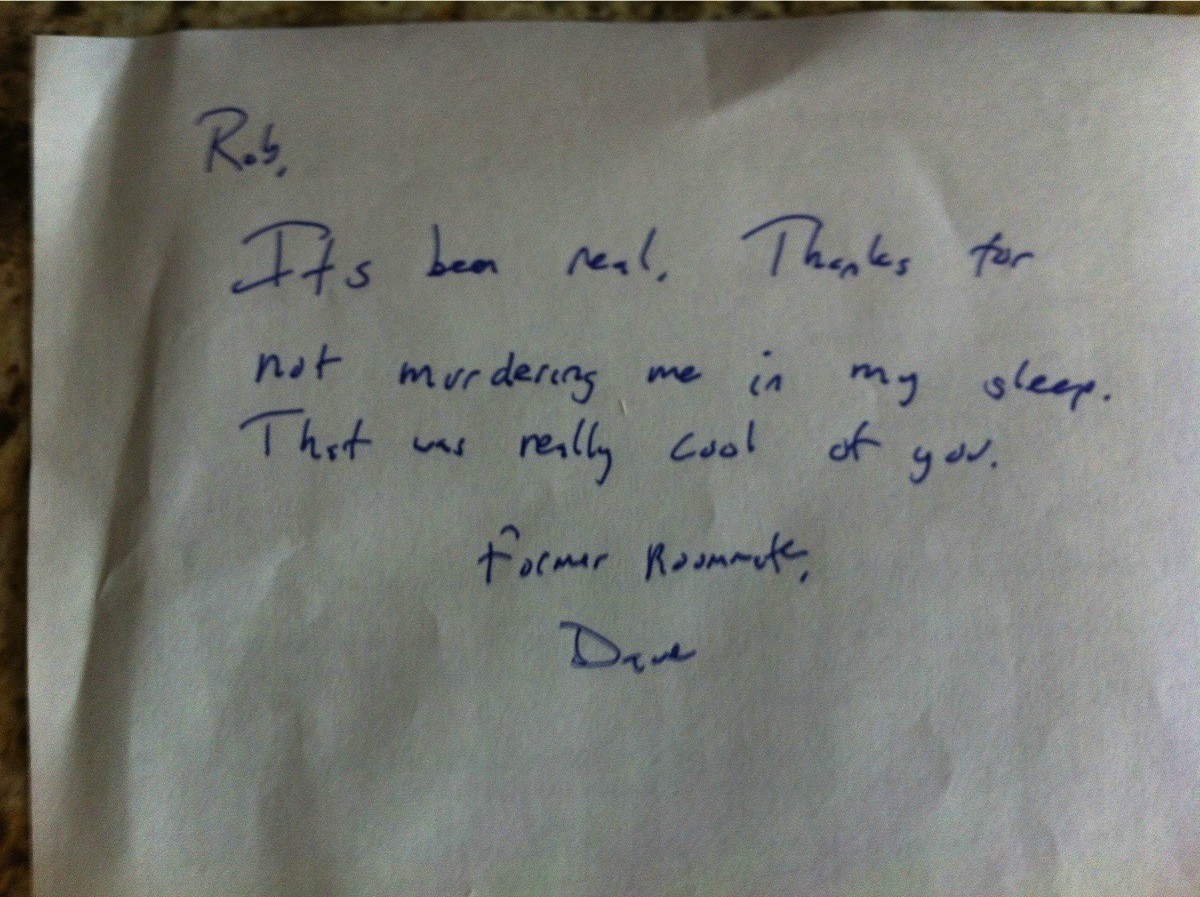 Rob,
Its been real. Thanks for
not murdering me in my sleep.
That was really cool of you.
Former Roommate,
Dave